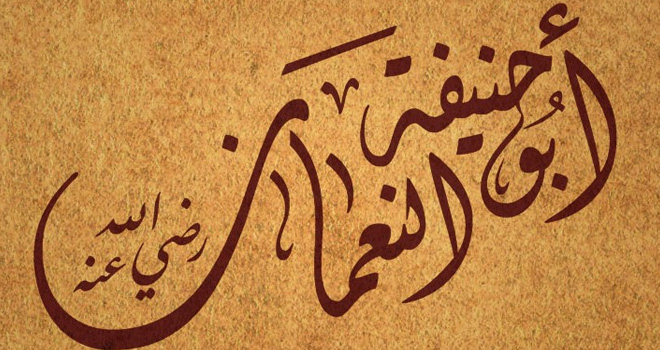 أبو حنيفة
النعمان
رضي الله عنه